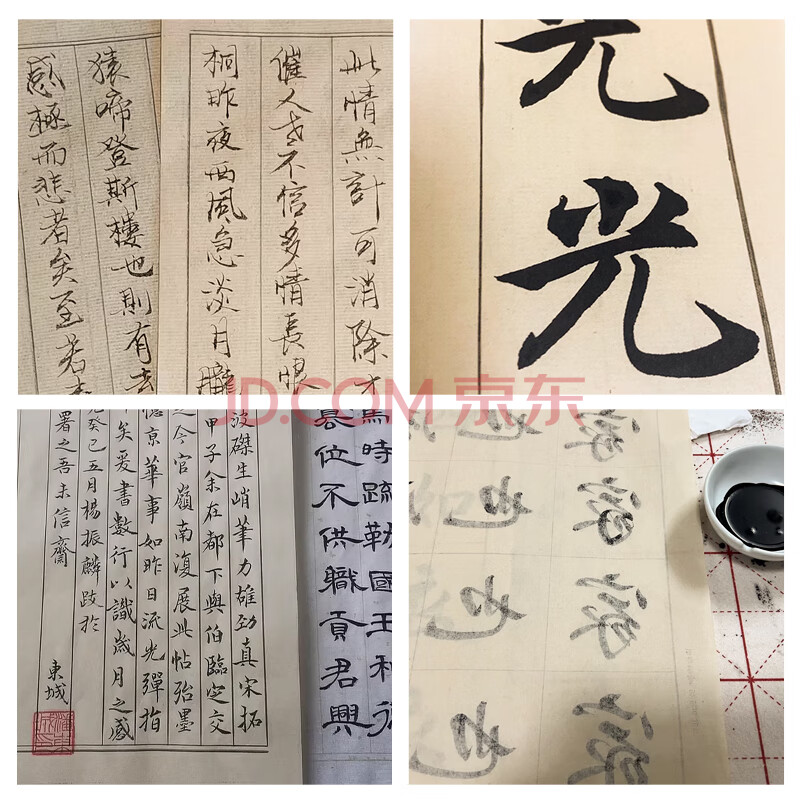 此情無計可消除才
催人老不信多情長恨
桐昨夜西風急淡月朧
猿啼登斯樓也則有去
感極而悲者矣至若春
光
光
馬時疏勒國王和德
篡位不供職貢君興
波磔生峭筆力雄勁真宋拓
甲子余在都下與伯臨定交
之今官嶺南復展此帖殆墨
憶京華事如昨日流光彈指
矣爰書數行以識歲月之感
光癸巳五月楊振麟跋於
署之吾未信齋
東城
JD.COM 京东